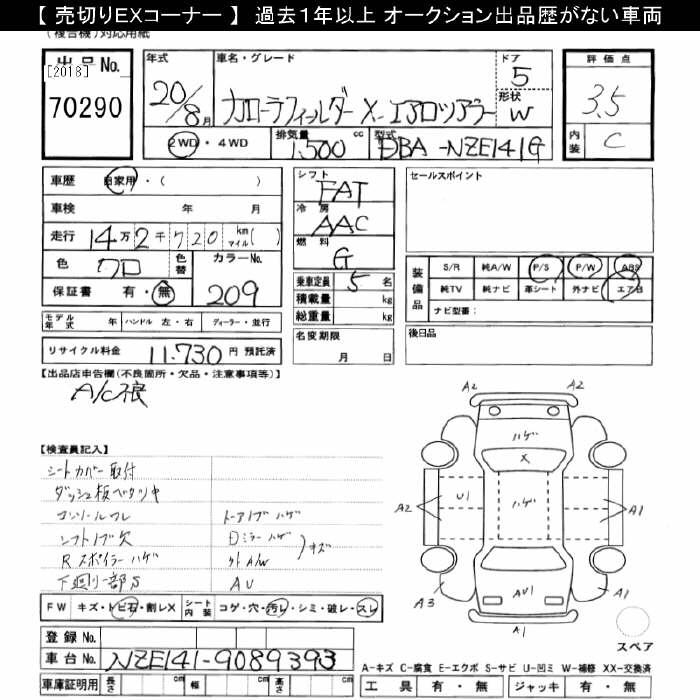 【 売切りEXコーナー 】 過去1年以上 オークション出品歴がない車両
(複合機)対応用紙
出品No.
[2018]
70290
年式 20/8月
車名・グレード カローラフィールダー X-エアロツアラー
ドア 5
形状 W
2WD・4WD
排気量 1,500 cc
型式 DBA-NZE141G
評価点 3.5
内装 C
車歴 自家用・( )
車検 年 月
走行 14万2千720 km マイル( )
色 クロ 色替 カラーNo. 209
保証書 有・無
モデル年式 年 ハンドル 左・右 ディーラー・並行
リサイクル料金 11.730 円 預託済
シフト FAT
冷房 AAC
燃料 G
乗車定員 5 名
積載量 kg
総重量 kg
名変期限 月 日
セールスポイント
装備品
S/R 純A/W P/S P/W ABS
純TV 純ナビ 革シート 外ナビ エアB
ナビ型番:
後日品
【出品店申告欄(不良箇所・欠品・注意事項等)】
A/C不良
【検査員記入】
シートカバー取付
ダッシュ板ベタツキ
コンソールワレ
シフトノブ欠
Rスポイラーハゲ
下廻り一部S
ドアノブハゲ
Dミラーハゲ
外A/W
キズ
AU
FW キズ・トビ石・割レX シート内装 コゲ・穴・汚レ・シミ・破レ・スレ
登録No.
車台No. NZE141-9089393
車庫証明用 長さ cm 幅 cm 高さ cm
A2 A2
ハゲ
X
A2 U1 ハゲ A1
A3 AU1 A1
A1
スペア
A-キズ C-腐食 E-エクボ S-サビ U-凹ミ W-補修 XX-交換済
工具 有・無 ジャッキ 有・無